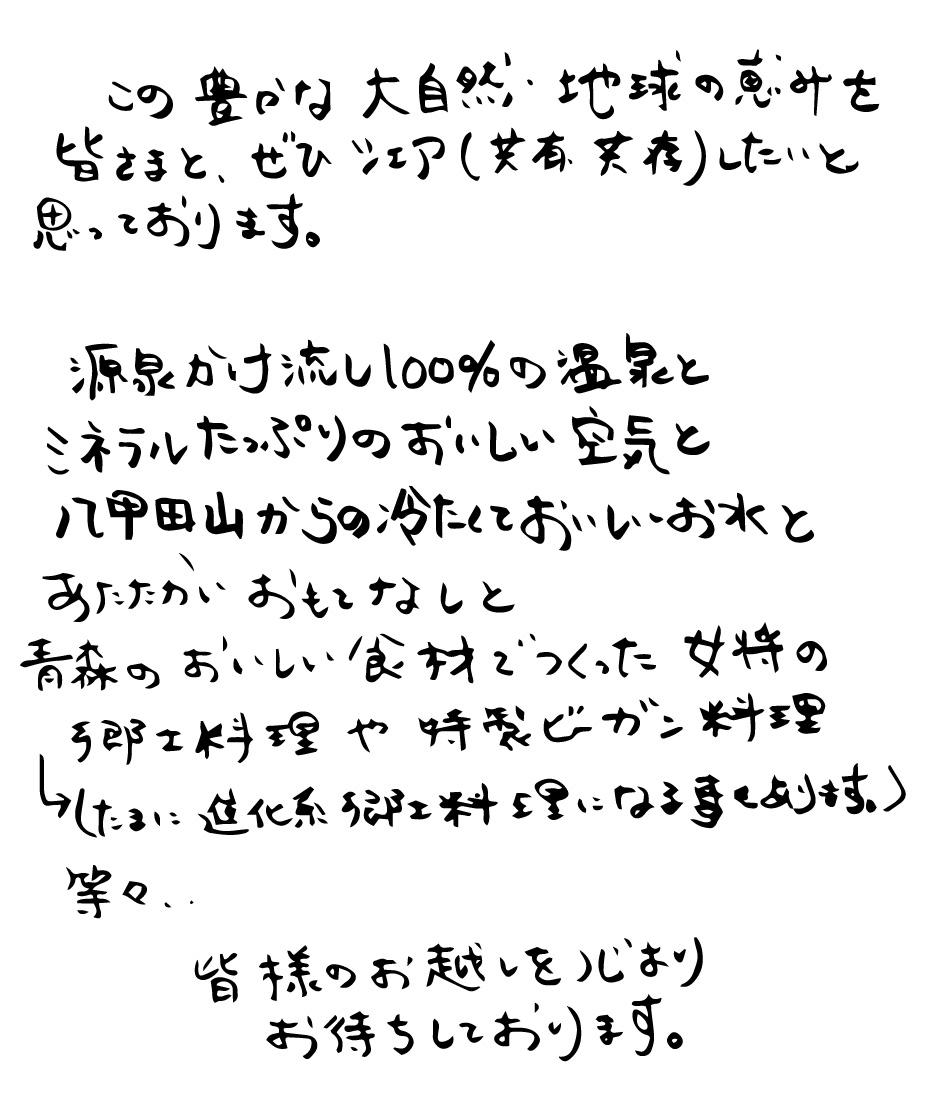 この豊かな大自然・地球の恵みを
皆さまと、ぜひシェア(共有 共存)したいと
思っております。
源泉かけ流し100%の温泉と
ミネラルたっぷりのおいしい空気と
八甲田山からの冷たくておいしいお水と
あたたかい おもてなしと
青森のおいしい食材でつくった 女将の
郷土料理 や 特製ビーガン料理
↳(たまに進化系郷土料理になる事もあります。)
等々..
皆様のお越しを心より
お待ちしております。